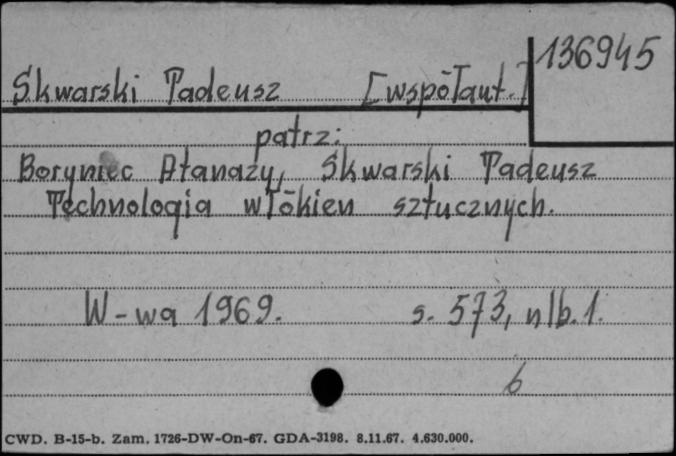 136945
Skwarski Tadeusz [współaut.]
patrz:
Boryniec Atanazy, Skwarski Tadeusz
Technologia włókien sztucznych.
W-wa 1969. s. 573, nlb. 1.
6
CWD. B-15-b. Zam. 1726-DW-On-67. GDA-3198. 8.11.67. 4.630.000.